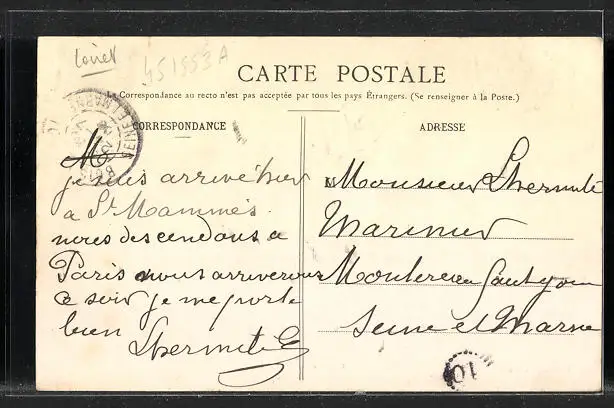 Loiret
451953A
CARTE POSTALE
La Correspondance au recto n'est pas acceptée par tous les pays Étrangers. (Se renseigner à la Poste.)
CORRESPONDANCE
ADRESSE
SEINE ET MARNE
M
je suis arrivé hier
a St Mammès
nous des cendons a
Paris nous arriverons
ce soir je me porte
bien
Lhermite
M Monsieur Lhermite
Marinier
Montereau faut yonne
Seine et Marne
10